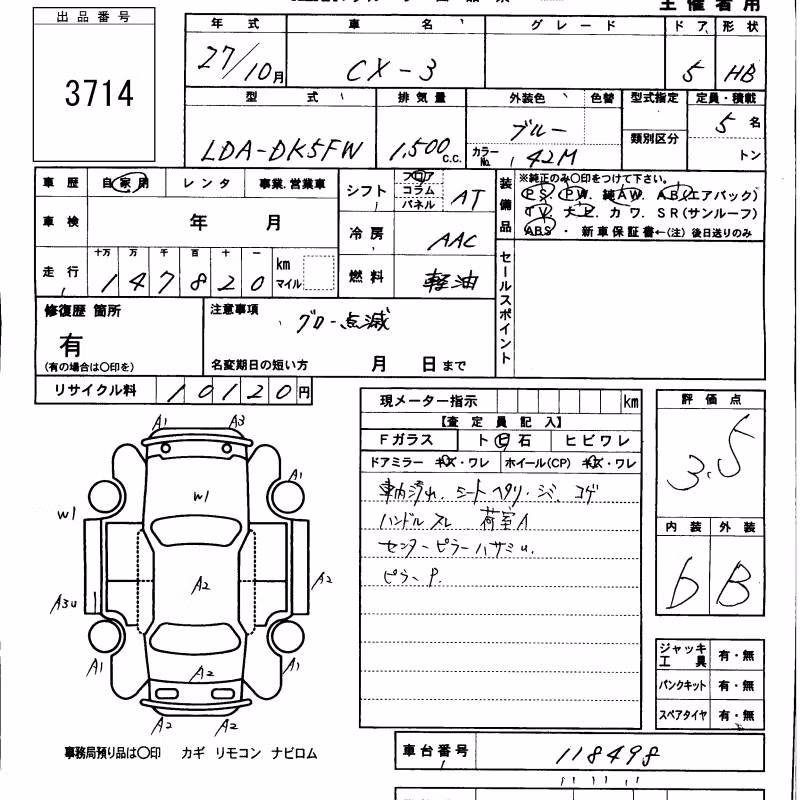 主催者用
出品番号
3714
年式 車名 グレード ドア 形状
27/10月 CX-3 5 HB
型式 排気量 外装色 色替 型式指定 定員・積載
LDA-DK5FW 1,500 C.C. ブルー 5名
カラーNo. 42M 類別区分 トン
車歴 自家用 レンタ 事業.営業車
シフト フロア コラム パネル AT
装備品 ※純正のみ〇印をつけて下さい。
PS. PW. 純AW. AB(エアバック)
TV. ナビ. カワ. SR(サンルーフ)
ABS・新車保証書←(注)後日送りのみ
車検 年 月
冷房 AAC
走行 十万 万 千 百 十 一
147820 km マイル
燃料 軽油
セールスポイント
修復歴 箇所 注意事項
有 グロー点滅
(有の場合は〇印を) 名変期日の短い方 月 日まで
リサイクル料 10120円
現メーター指示 km
【査定員記入】
Fガラス ト日石 ヒビワレ
ドアミラー キズ・ワレ ホイール(CP) キズ・ワレ
車内汚れ. シートヘタリ・シミ. コゲ
ハンドルスレ 荷室A
センターピラーハサミu.
ピラーP.
評価点
3.5
内装 外装
D B
A1 A3
A1
W1
W1
A2
A2
A3u
A1 A2 A1
A2 A2
ジャッキ工具 有・無
パンクキット 有・無
スペアタイヤ 有・無
事務局預り品は〇印 カギ リモコン ナビロム
車台番号 118498